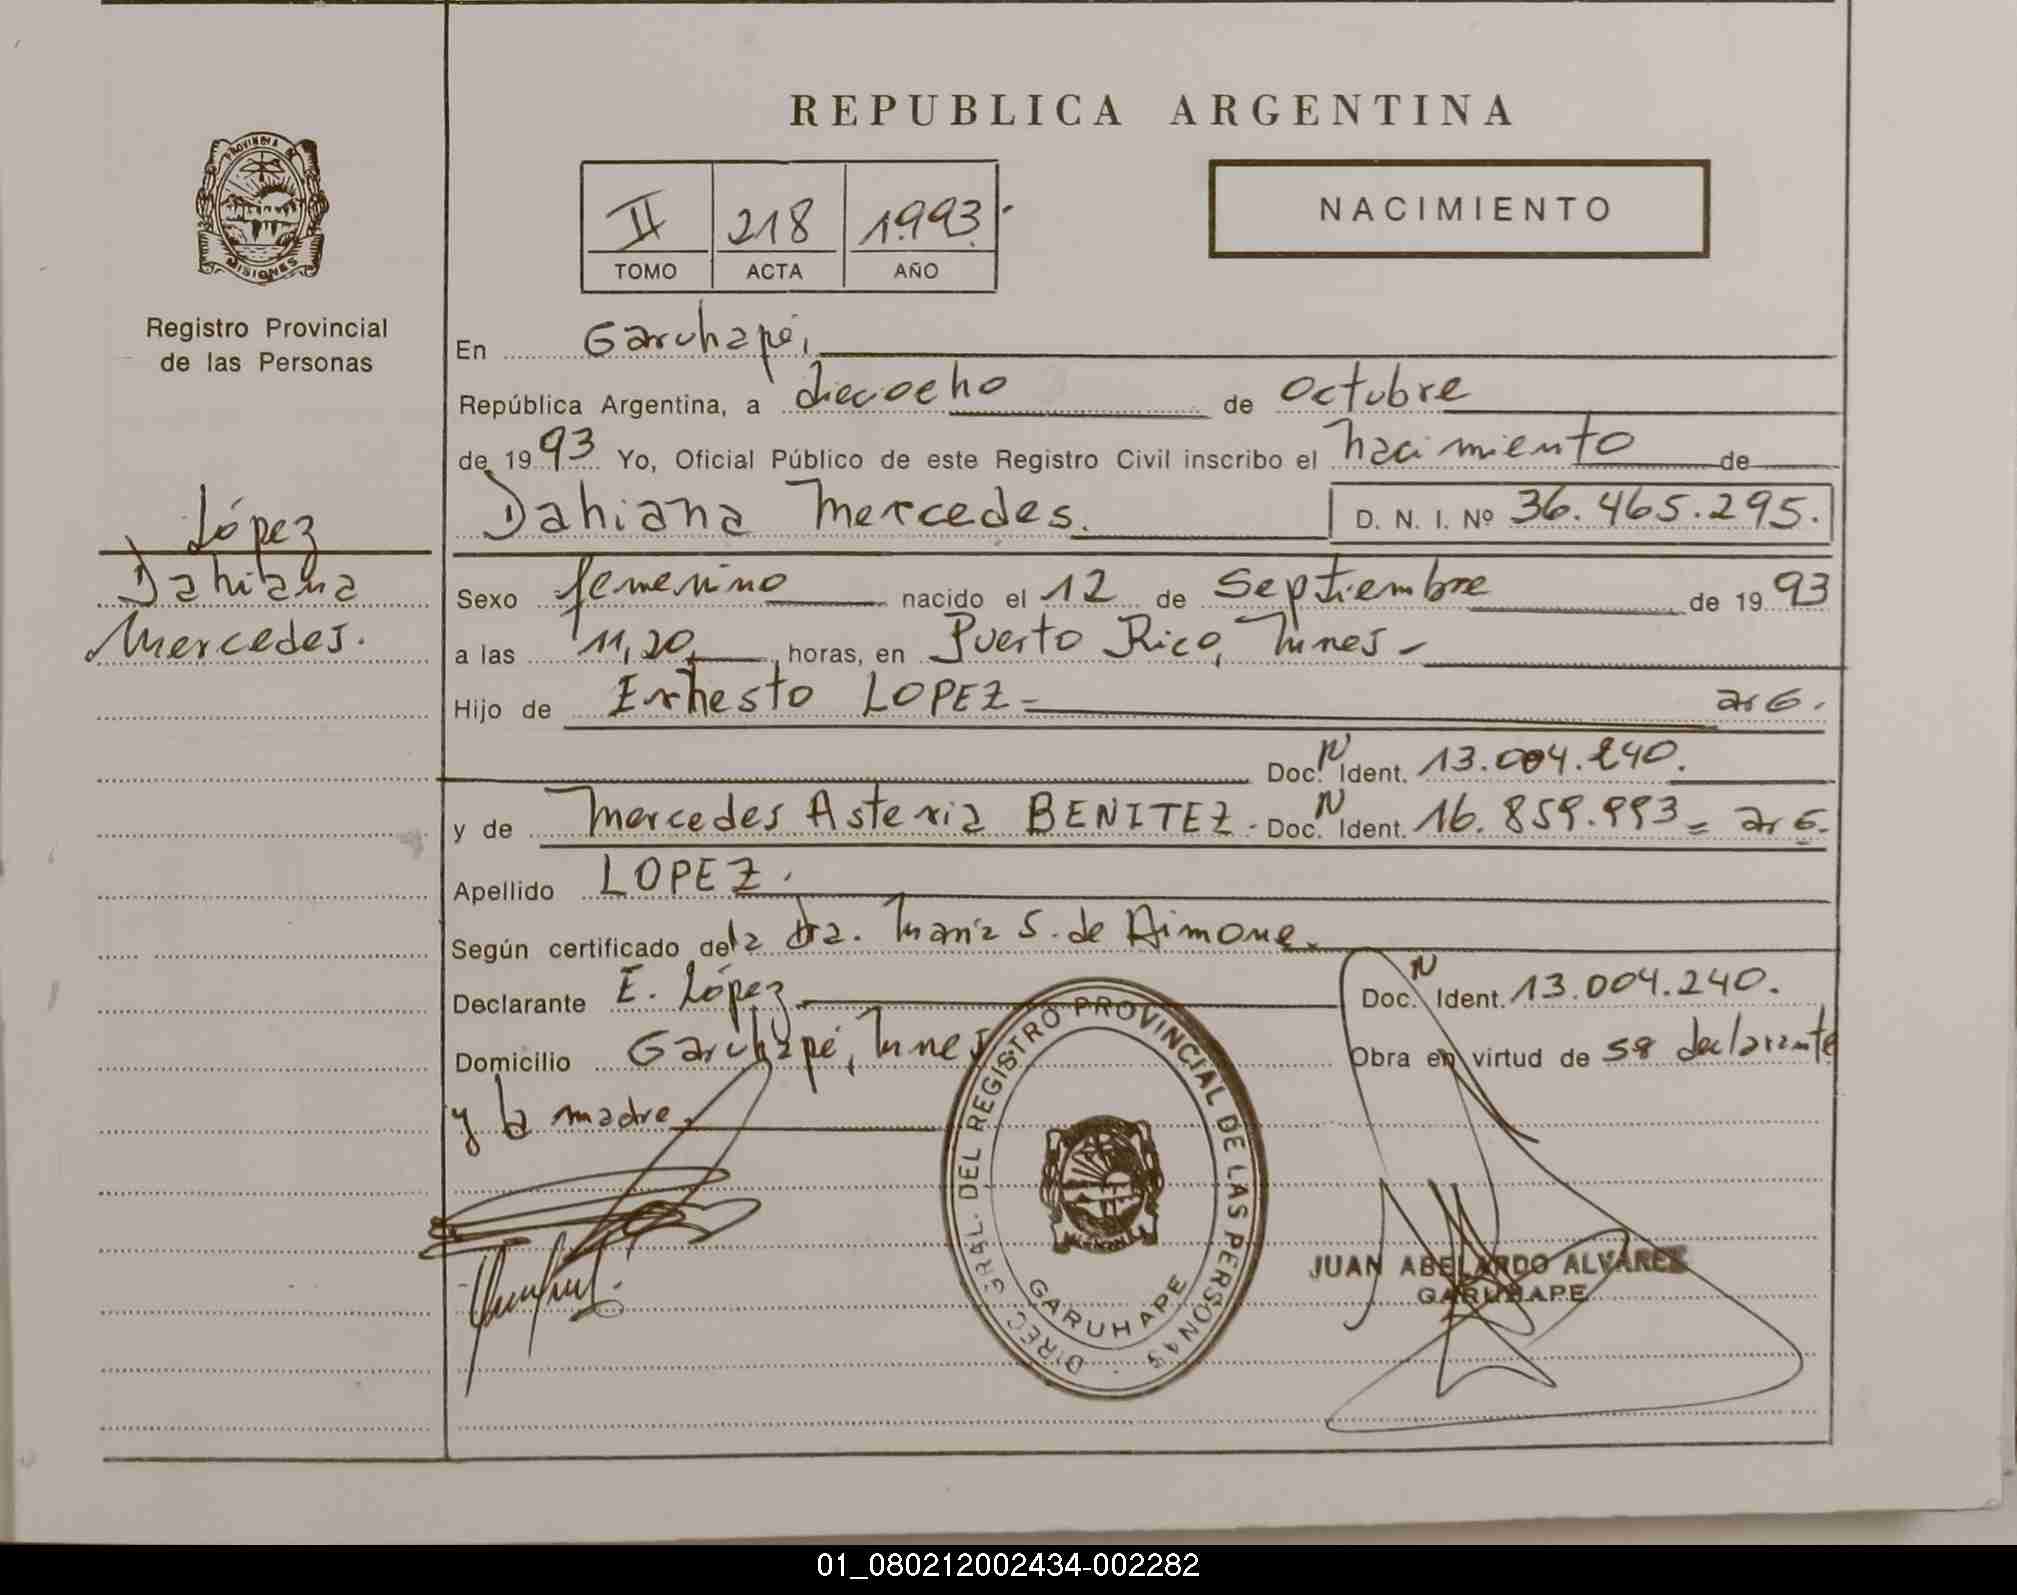 REPUBLICA ARGENTINA
PROVINCIA DE
MISIONES
Registro Provincial
de las Personas
II 218 1.993.
TOMO ACTA AÑO
NACIMIENTO
En Garuhapé,
República Argentina, a dieciocho de octubre
de 1993 Yo, Oficial Público de este Registro Civil inscribo el nacimiento de
Dahiana Mercedes. D. N. I. Nº 36.465.295.
López
Dahiana
Mercedes.
Sexo femenino nacido el 12 de Septiembre de 1993
a las 11,20, horas, en Puerto Rico, Mnes-
Hijo de Ernesto LOPEZ= arG.
Doc. N Ident. 13.004.240.
y de Mercedes Asteria BENITEZ. Doc. N Ident. 16.859.993= arG.
Apellido LOPEZ.
Según certificado de la Dra. María S. de Aimone.
Declarante E. López Doc. N Ident. 13.004.240.
Domicilio Garuhapé, Mnes Obra en virtud de ser declarante
y la madre.
DIREC. GRAL. DEL REGISTRO PROVINCIAL DE LAS PERSONAS
GARUHAPE
JUAN ABELARDO ALVAREZ
GARUHAPE
01_080212002434-002282